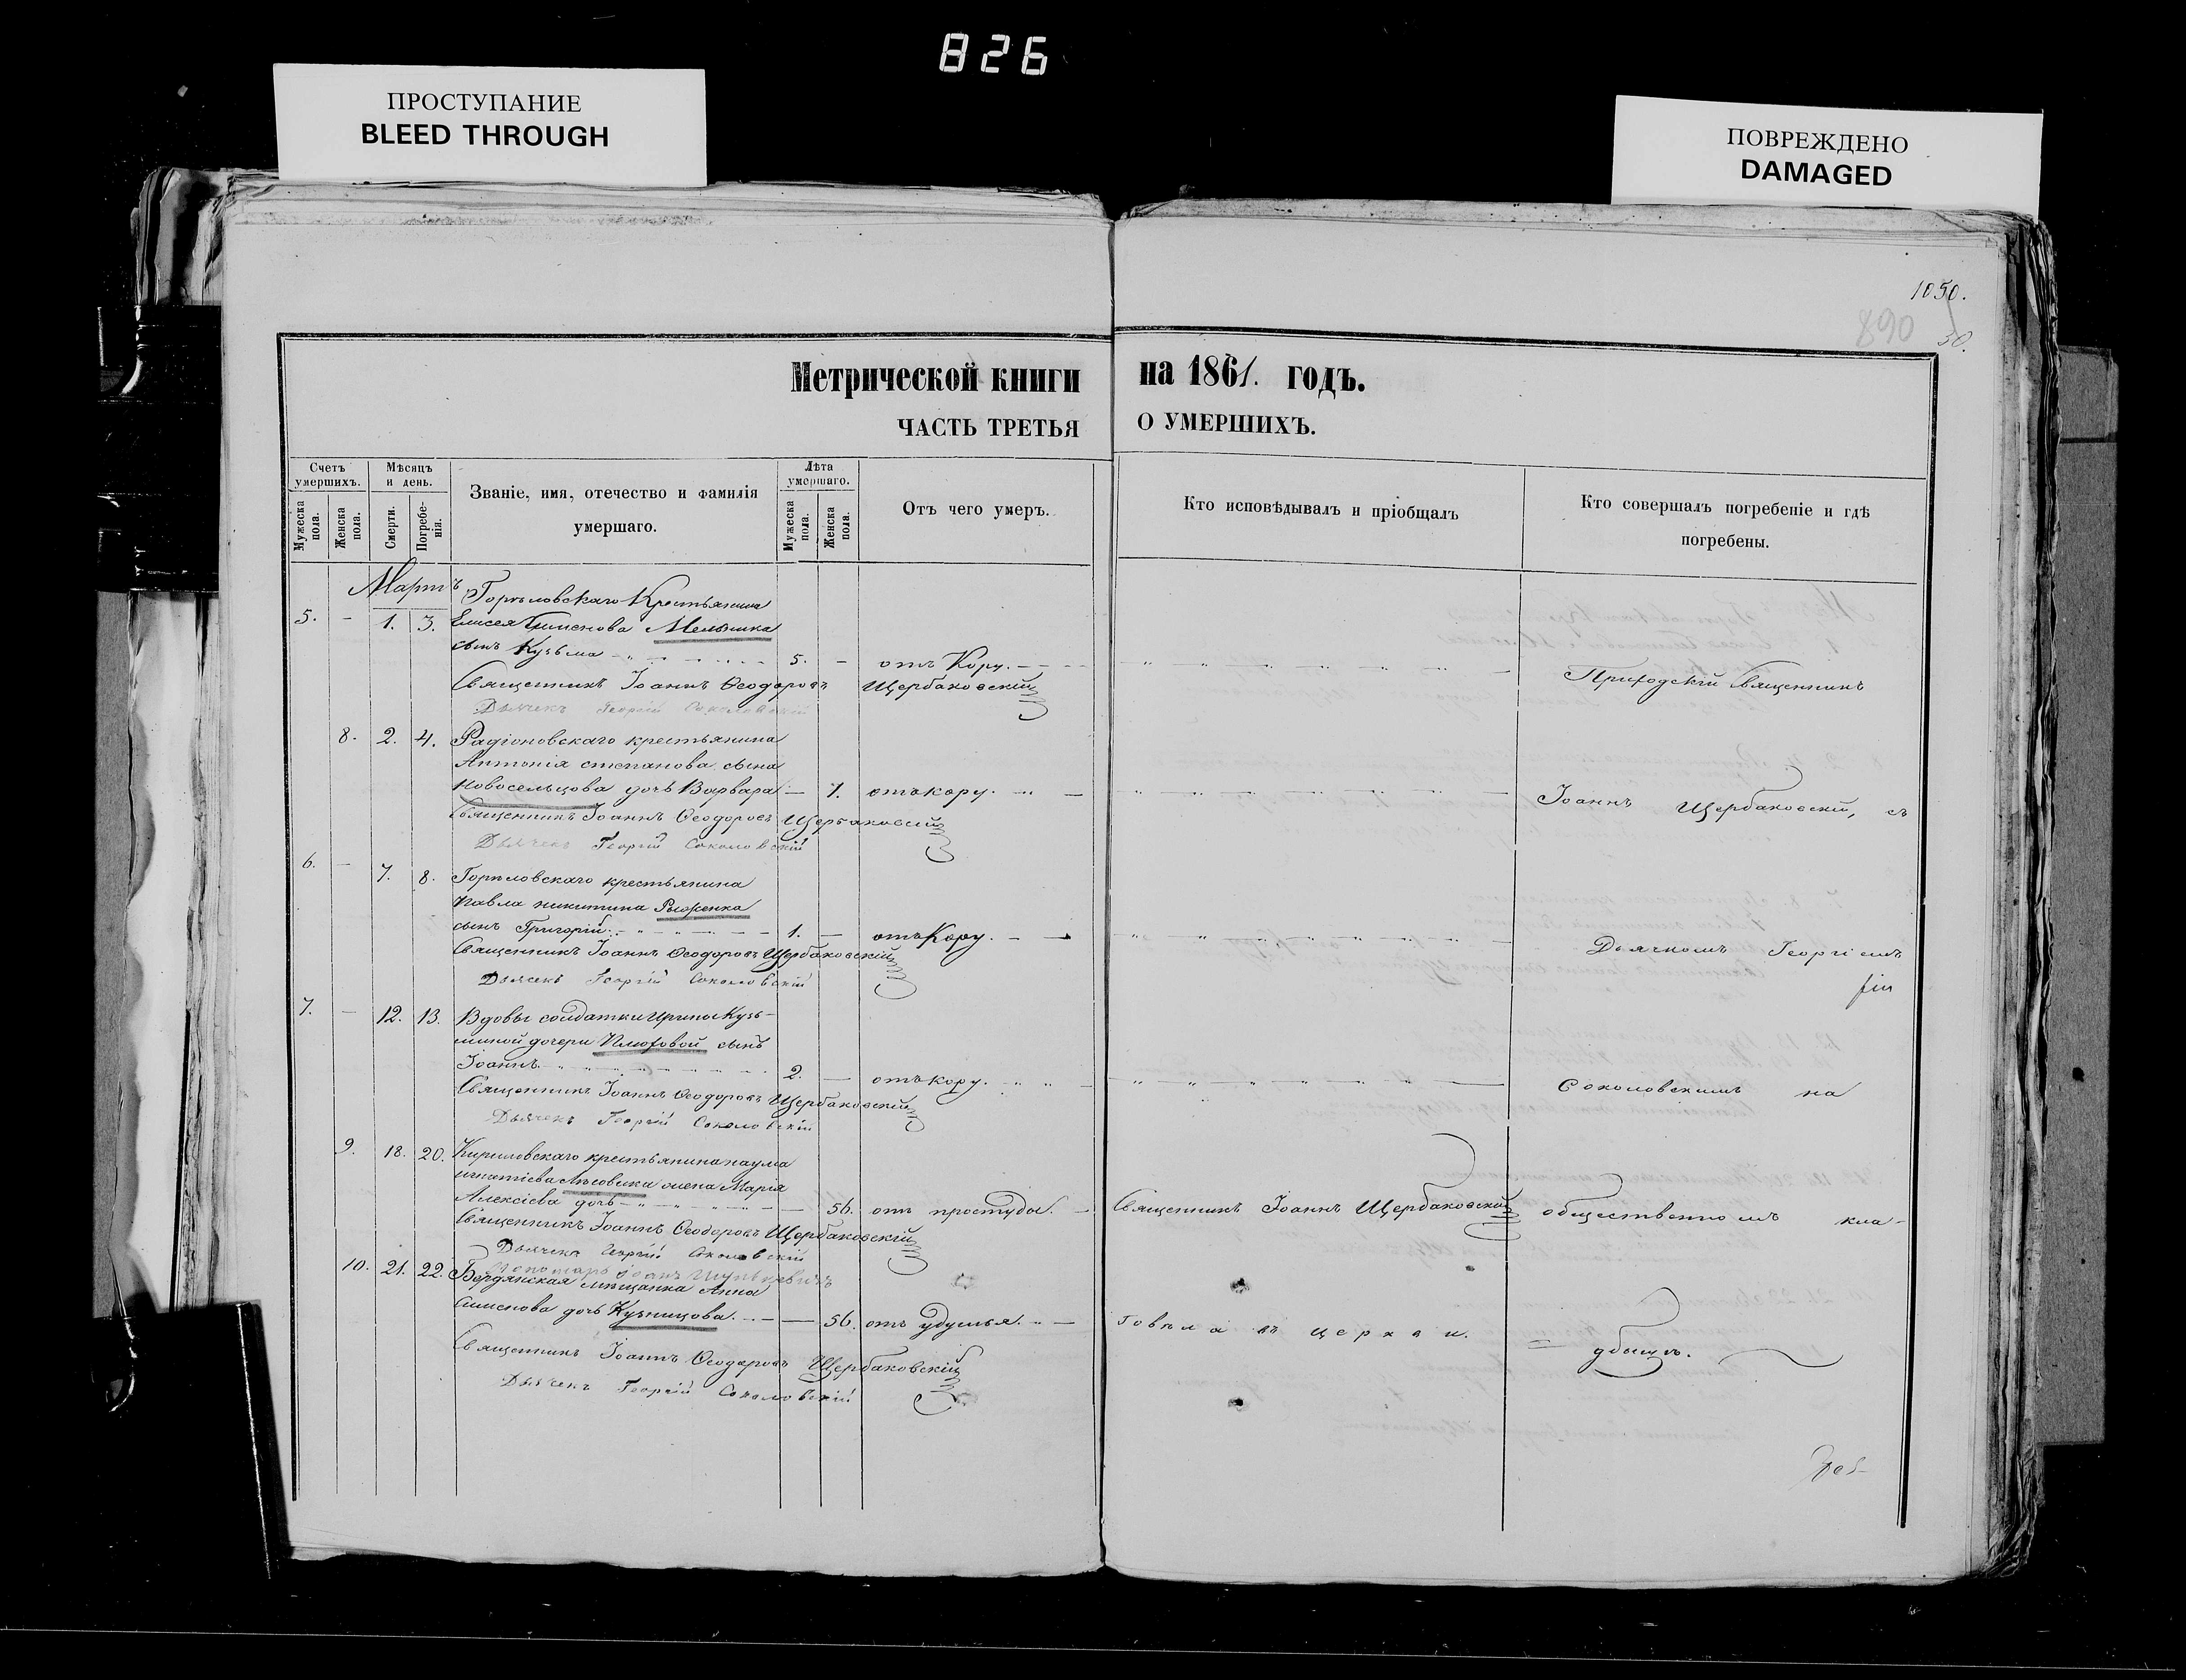 826
ПРОСТУПАНИЕ
BLEED THROUGH
ПОВРЕЖДЕНО
DAMAGED
1050.
890
50.
Метрической книги на 1861. годъ.
ЧАСТЬ ТРЕТЬЯ О УМЕРШИХЪ.
Счетъ умершихъ.
Мужеска пола.
Женска пола.
Мѣсяцъ и день.
Смерти.
Погребенія.
Званіе, имя, отечество и фамилія умершаго.
Лѣта умершаго.
Мужеска пола.
Женска пола.
Отъ чего умеръ.
Кто исповѣдывалъ и пріобщалъ
Кто совершалъ погребеніе и гдѣ погребены.
Мартъ
Горѣловскаго Крестьянина
5. - 1. 3. Елисея Мельника
сынъ Кузьма 5. - отъ Кору.
Священникъ Іоаннъ Ѳеодоровъ Щербаковскій
Дьячекъ Георгій Соколовскій
Приходскій Священникъ
8. 2. 4. Радіоновскаго крестьянина
Антонія степанова сына
Новосельцова дочь Варвара - 7. отъ кору.
Священникъ Іоаннъ Ѳеодоровъ Щербаковскій
Дьячекъ Георгій Соколовскій
Іоаннъ Щербаковскій, съ
6. - 7. 8. Горѣловскаго крестьянина
Павла никитина Рыженка
сынъ Григорій 1. - отъ Кору.
Священникъ Іоаннъ Ѳеодоровъ Щербаковскій
Дьячекъ Георгій Соколовскій
Дьячкомъ Георгіемъ
7. - 12. 13. Вдовы солдатки Ирины Кузь-
миной дочери сынъ
Іоаннъ 2. - отъ кору.
Священникъ Іоаннъ Ѳеодоровъ Щербаковскій
Дьячекъ Георгій Соколовскій
Соколовскимъ на
9. 18. 20. Кириловскаго крестьянина наума
игнатіева Лѣсовика жена Марія
Алексіева дочь - 56. отъ простуды.
Священникъ Іоаннъ Щербаковскій
общественномъ кла-
Священникъ Іоаннъ Ѳеодоровъ Щербаковскій
Дьячекъ Георгій Соколовскій
10. 21. 22. Бердянская мѣщанка Анна
Симонова дочь Кузницова. - 56. отъ удушья.
Говѣла въ церкви.
дбищѣ.
Священникъ Іоаннъ Ѳеодоровъ Щербаковскій
Дьячекъ Георгій Соколовскій